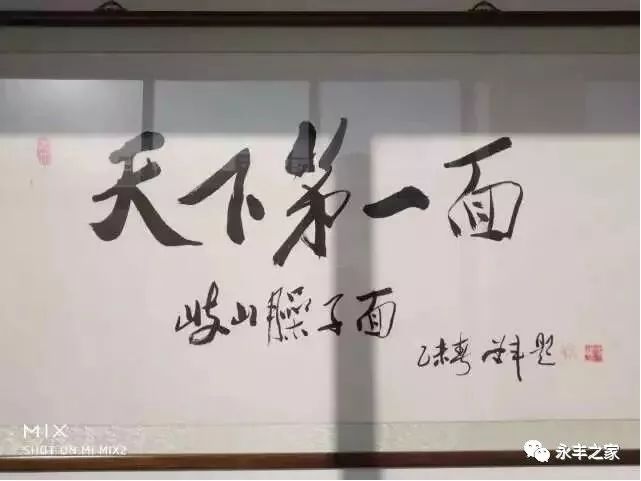 天下第一面
岐山臊子面
乙未春 笠丰题
MIX
SHOT ON MI MIX2
永丰之家